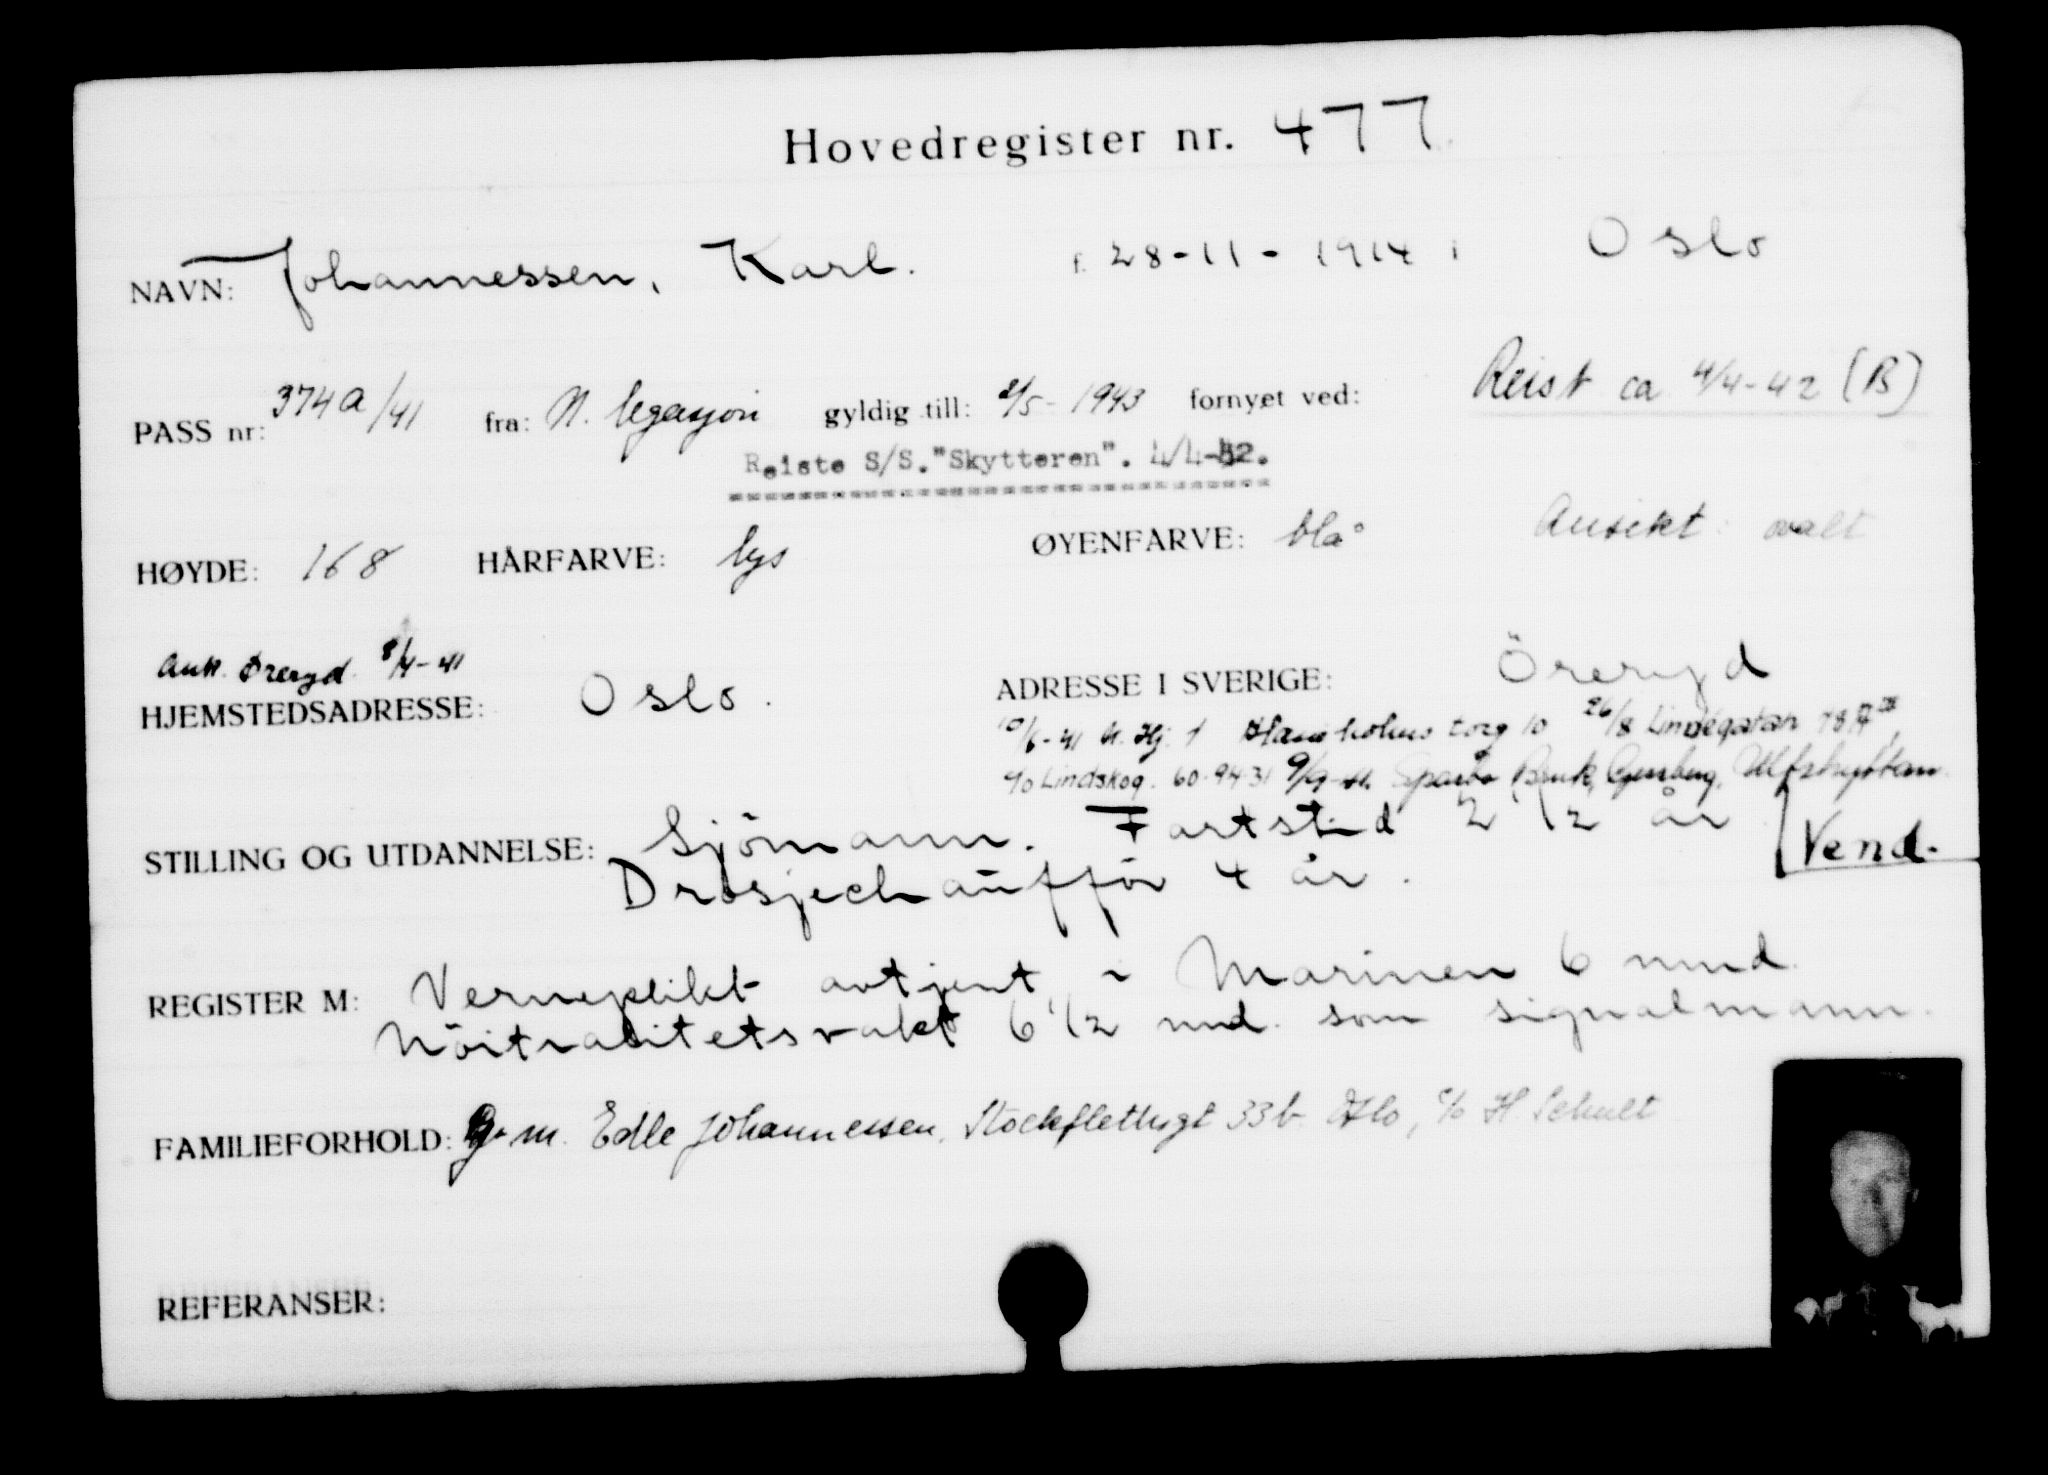 Hovedregister nr. 477
NAVN: Johannessen, Karl. f. 28-11-1914 i Oslo
PASS nr: 374a/41 fra: N. legasjon gyldig till: 8/5-1943 fornyet ved: Reist ca 4/4-42 (B)
Reiste S/S."Skytteren". 4/4-42.
HØYDE: 168 HÅRFARVE: lys ØYENFARVE: blå Ansikt: ovalt
Ank. Öreryd 8/4-41
HJEMSTEDSADRESSE: Oslo. ADRESSE I SVERIGE: Öreryd
10/6-41 N. Hj. 1 torg 10 26/8 Lindegatan 18 A
c/o Lindskog. 60.94.31 9/9-41. Bruk, Ulfshyttan
STILLING OG UTDANNELSE: Sjömann. Fartstid 2 1/2 år Vend.
Drosjechaufför 4 år.
REGISTER M: Verneplikt avtjent i Marinen 6 mnd.
Nöitralitetsvakt 6 1/2 mnd. som signalmann.
FAMILIEFORHOLD: G. m. Edle Johannessen, Stockflethsgt 33b Oslo, c/o H. Schult
REFERANSER: